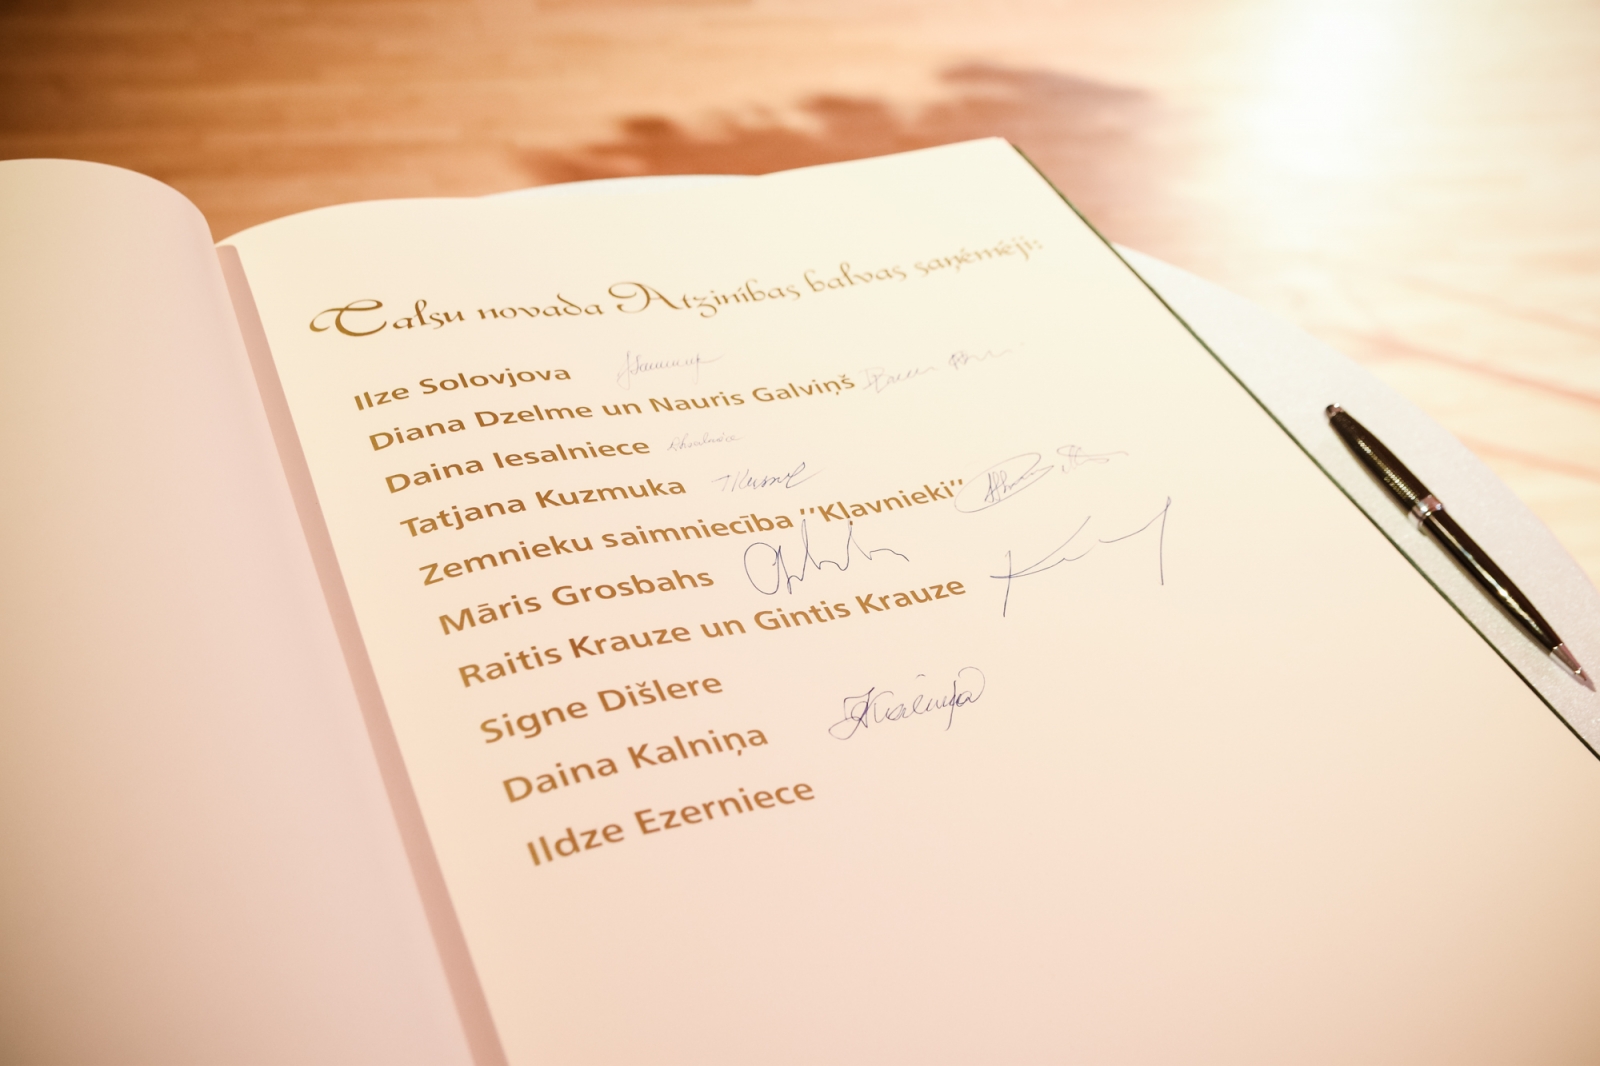 Talsu novada Atzinības balvas saņēmēji:
Ilze Solovjova
Diana Dzelme un Nauris Galviņš
Daina Iesalniece
Tatjana Kuzmuka
Zemnieku saimniecība ''Kļavnieki''
Māris Grosbahs
Raitis Krauze un Gintis Krauze
Signe Dišlere
Daina Kalniņa
Ildze Ezerniece